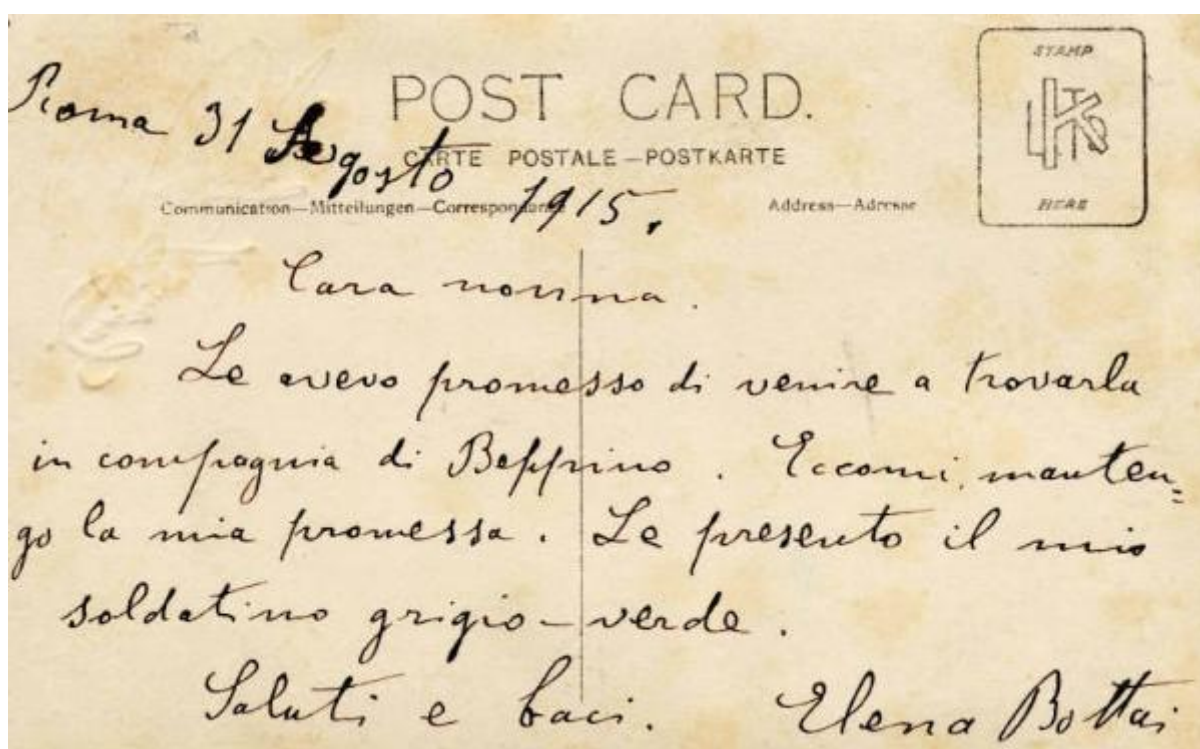 STAMP
POST CARD.
Roma 31 Agosto 1915.
CARTE POSTALE–POSTKARTE
Communication–Mitteilungen–Correspondance
Address–Adresse
HERE
Cara nonna.
Le avevo promesso di venire a trovarla
in compagnia di Beppino. Eccomi, manten=
go la mia promessa. Le presento il mio
soldatino grigio-verde.
Saluti e baci. Elena Bottai